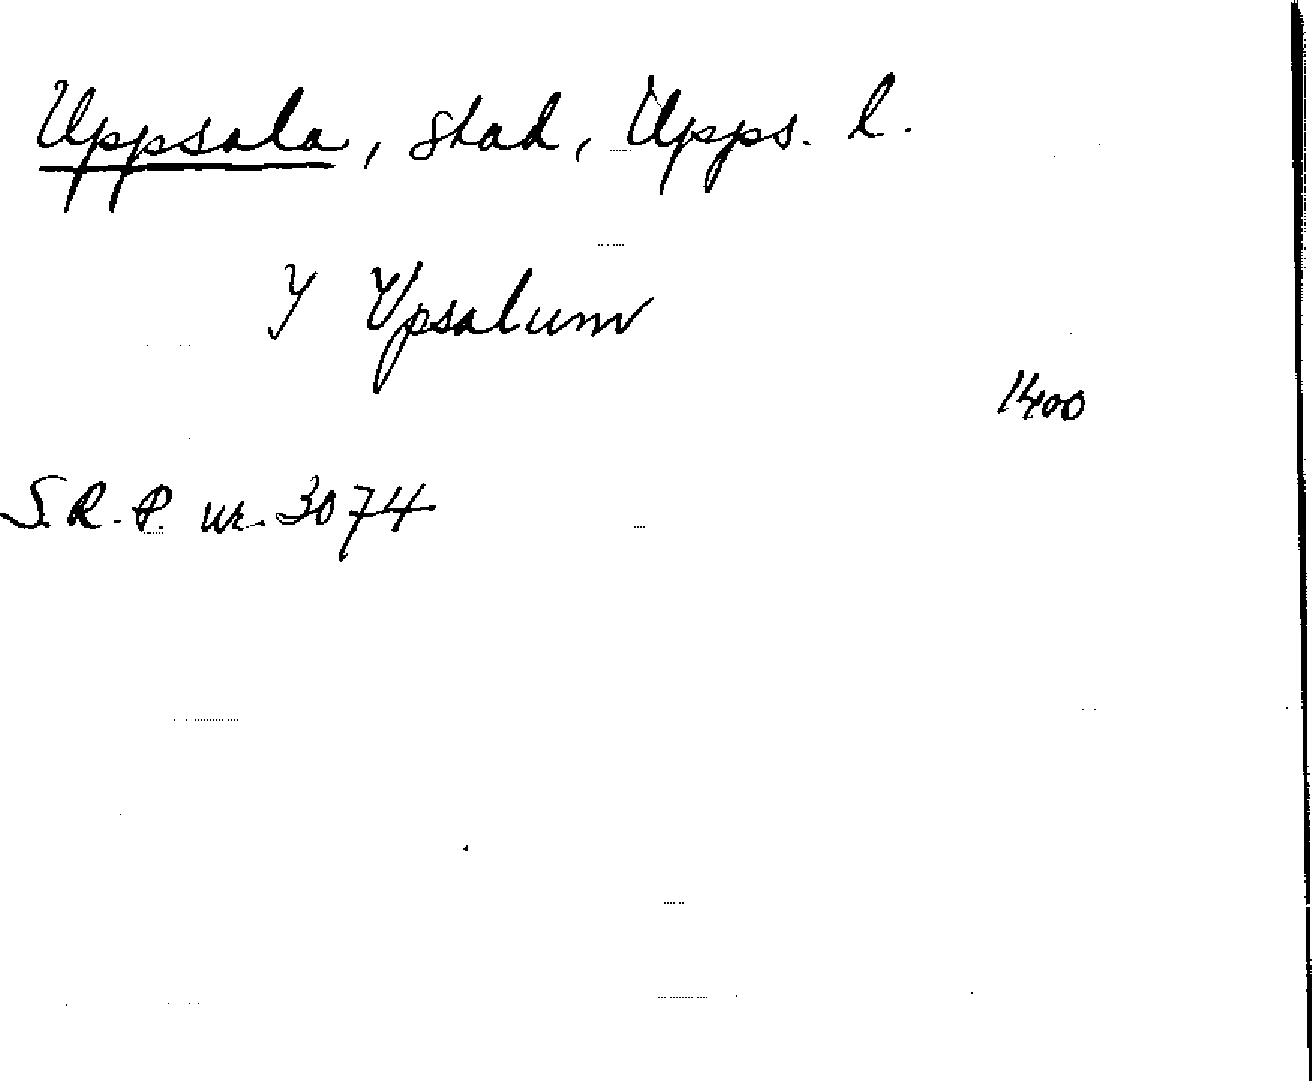 Uppsala, stad, Upps. l.
J Vpsalum
1400
S.R.P. nr. 3074